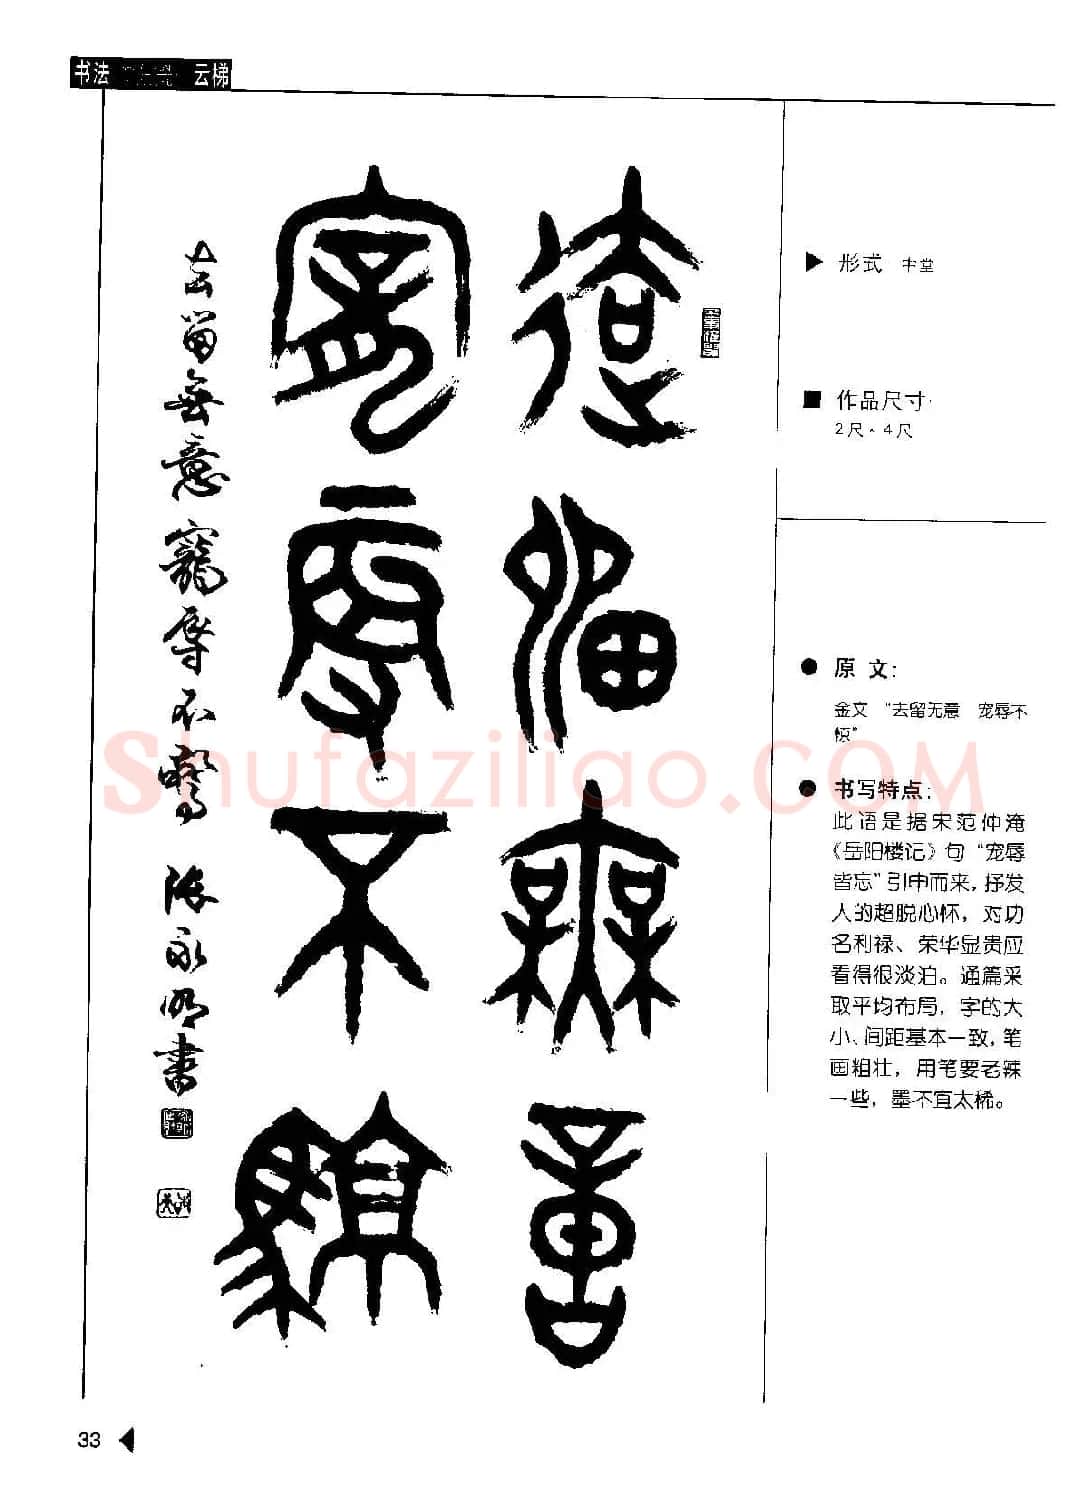 书法 云梯
去留無意
寵辱不驚
去留無意寵辱不驚 徐永明書
▶ 形式 中堂
■ 作品尺寸:
2尺×4尺
● 原 文:
金文 “去留无意 宠辱不
惊”
● 书写特点:
此语是据宋范仲淹
《岳阳楼记》句“宠辱
皆忘”引申而来,抒发
人的超脱心怀,对功
名利禄、荣华显贵应
看得很淡泊。通篇采
取平均布局,字的大
小、间距基本一致,笔
画粗壮,用笔要老辣
一些,墨不宜太稀。
Shufaziliao.COM
33